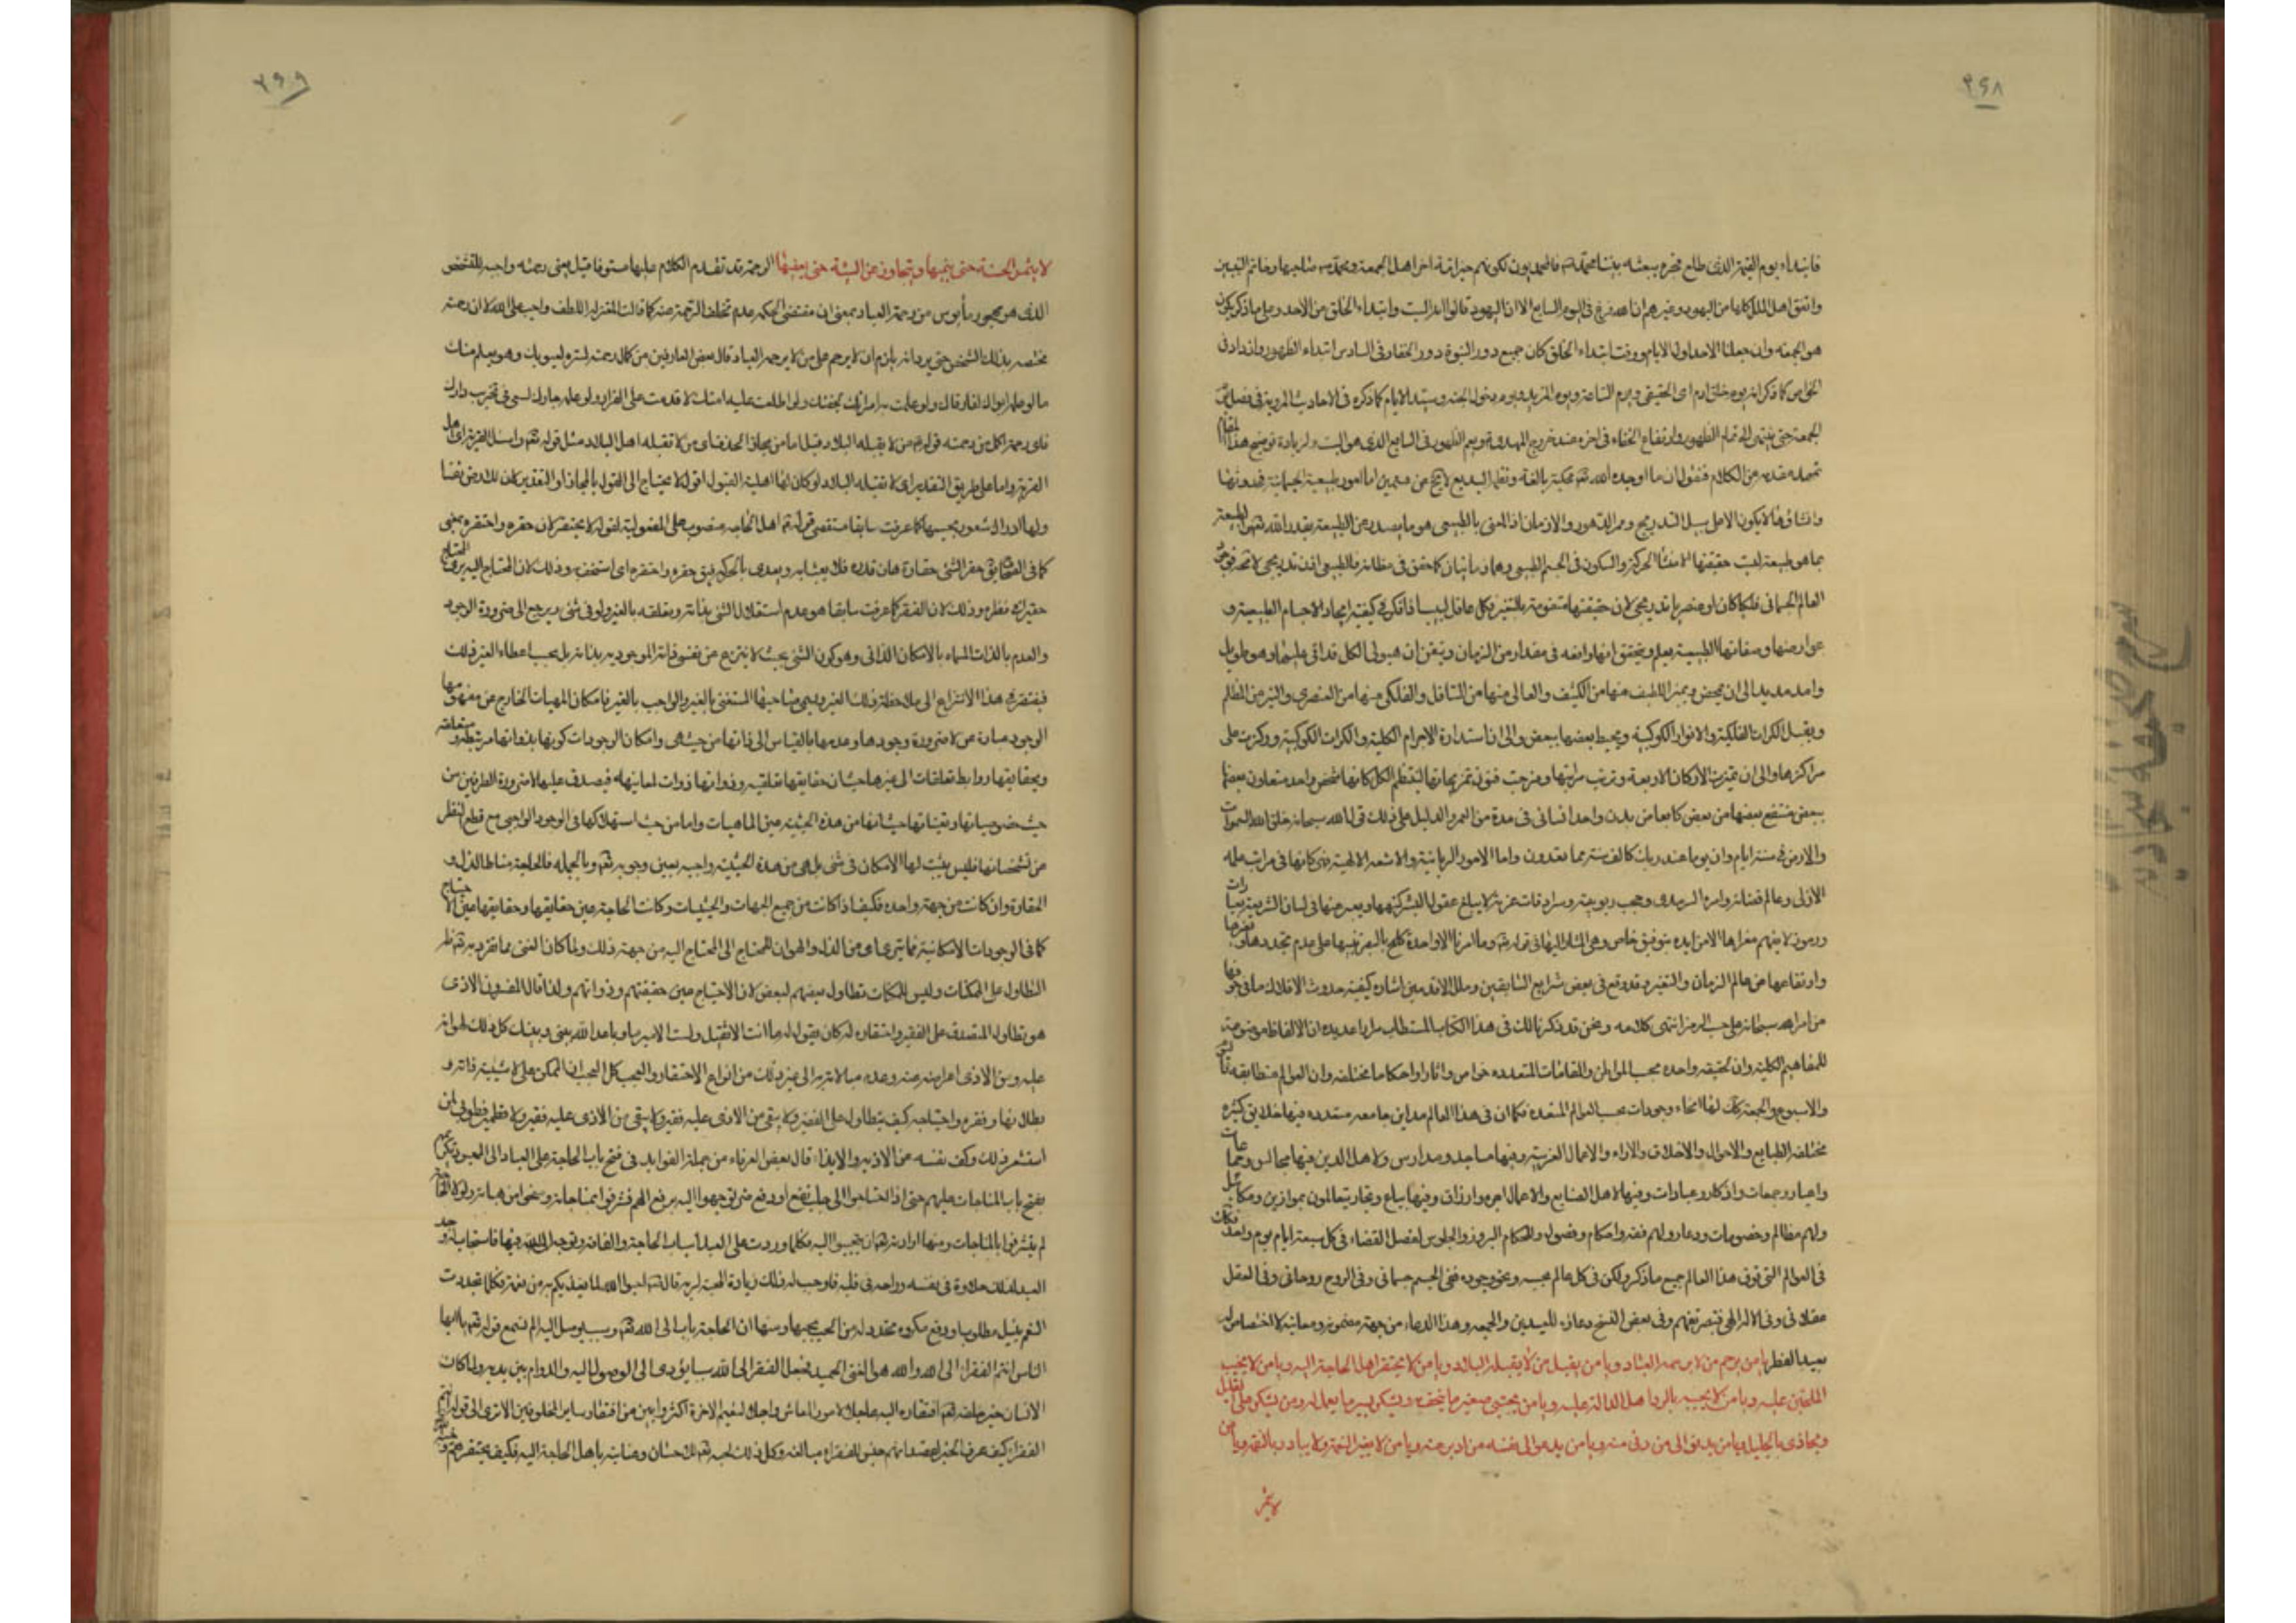 ۳۶۸
فابتداء يوم القيمة الذى طلع فجره ببعثه
واتفق اهل الملل كلها من اليهود وغيرهم ان الله فرغ فى اليوم السابع الا ان اليهود قالوا انه السبت وابتداء الخلق من الاحد وعلى ما ذكر يكون
هو الجمعه وان جعلنا الاحد اول الايام ووقت ابتداء الخلق كان جميع دور النبوة دور الخفاء وفى السادس ابتداء الظهور وازداد فى
الخواص كما ذكر انه يوم خلق ادم اى الحقيقى ويوم الساعة ويوم المزيد ويوم دخول الجنه وسيد الايام كما ذكره فى الاحاديث المروية فى فضل
الجمعة حتى ينتهى الى تمام الظهور وارتفاع الخفاء فى اخره عند خروج المهدى ويعم الظهور فى السابع الذى هو السبت ولزيادة توضيح هذا المقام
تمهد مقدمه من الكلام فنقول ان ما اوجده الله تعم بحكمته بالغة ونظمه البديع لا يخ من قسمين اما امور طبيعية جسمانية فحدوثها
وانشاؤها لا يكون الا على سبيل التدريج وممر الدهور والازمان اذ المعنى بالطبيعى هو ما يصدر عن الطبيعة بقدر الله تعم والطبيعة
بما هو طبيعة ليست حقيقتها الا منشأ الحركة والسكون فى الجسم الطبيعى وهما زمانيان كما حقق فى مظانه فالطبيعى اذن تدريجى لا محة فوجود
العالم الجسمانى فلكيا كان او عنصريا تدريجى لان حقيقتها متقومة بالتغير فكل عاقل لبيب اذا فكر فى كيفية ايجاد الاجسام الطبيعية و
عوارضها وصفاتها الطبيعية يعلم ويتحقق انها واقعه فى مقدار من الزمان ويتقن ان هيولى الكل قد اتى عليها دهر طويل
وامد مديد الى ان تمخض ويميز اللطيف منها من الكثيف والعالى منها من السافل والفلكى منها من العنصرى والنير من المظلم
ويقبل الكرات الفلكية والانوار الكوكبية ويحيط بعضها ببعض والى ان استدارة الاجرام الكلية والكرات الكوكبية وركزت على
مراكزها والى ان تميزت الاركان الاربعة وترتبت مراتبها ومزجت فنون تمزيجاتها لينتظم الكل كانها شخص واحد متعاون بعضها
ببعض منتفع بعضها من بعض كاعضاء بدن واحد انسانى فى مدة من العمر والدليل على ذلك قول الله سبحانه خلق الله السموات
والارض فى ستة ايام وان يوما عند ربك كالف سنة مما تعدون واما الامور الربانية والاشعه الالهية فهى كانها فى مراتب علمه
الازلى وعالم قضائه وامره السرمدى وحجب ربوبيته وسرادقات عزته لا يبلغ عقول البشر كنهها ويعبر عنها فى لسان الشريعة بعبارات
ورموز لا يفهم مغزاها الا من ايده بتوفيق خاص وهى المشار اليها فى قوله تعم وما امرنا الا واحدة كلمح بالبصر تنبيها على عدم تجددها وتغيرها
وارتفاعها عن عالم الزمان والتغير وقد وقع فى بعض شرايع السابقين وملل الاقدمين اشاره كيفية حدوث الافلاك وما فى جوفها
من امر الله سبحانه على حسب الرمز انتهى كلامه ونحن قد ذكرنا لك فى هذا الكتاب المستطاب مرارا عديده ان الالفاظ موضوعة
للمفاهيم الكلية وان لحقيقه واحده بحسب المواطن والمقامات المتعدده خواص واثار واحكاما مختلفه وان العوالم متطابقه
والاسبوع والجمعة كك لها انحاء وجودات بحسب العوالم المتعدده فكما ان فى هذا العالم مداين جامعه متعدده فيها خلايق كثيره
مختلفه الطبايع والاحوال والاخلاق والاراء والاعمال الغريبة وفيها مساجد ومدارس ولاهل الدين فيها مجالس وجماعات
واعياد وجمعات واذكار وعبادات وفيها لاهل الصنايع والاعمال اجره وارزاق وفيها بياع وتجار يتعاملون بموازين ومكائيل
ولهم مظالم وخصومات ودعار ولهم فقه واحكام وفصول والحكام البروز والجلوس لفصل القضاء فى كل سبعة ايام يوم واحد فكك
فى العوالم التى فوق هذا العالم جميع ما ذكر ولكن فى كل عالم بحسبه وبنحو وجوده ففى الجسم جسمانى وفى الروح روحانى وفى العقل
عقلانى وفى الاله الهى فتبصر تفهم وفى بعض النسخ دعاؤه للعيدين والجمعه وهذا الدعاء من جهة مضمونه ومعانيه لا اختصاص له
بعيد الفطر يا من يرحم من لا يرحمه العباد ويا من يقبل من لا يقبله البلاد ويا من لا يحتقر اهل الحاجة اليه ويا من لا يخيب
الملحين عليه ويا من لا يجبه بالرد اهل الدالة عليه ويا من يجتبى صغير ما يتحف به ويشكر يسير ما يعمل له ومن يشكر على القليل
ويجازى بالجليل ويا من يدنو الى من دنى منه ويا من يدعو الى نفسه من ادبر عنه ويا من لا يغير النعمة ولا يبادر بالنقمة ويا من
لا يثمر
۳۶۹
لا يثمر الحسنة حتى ينميها ويتجاوز عن السيئة حتى يعفيها الرحمة قد تقدم الكلام عليها مستوفا قيل يعنى رحمته واجبه للشخص
الذى هو مهجور مأيوس من رحمة العباد بمعنى ان مقتضى الحكمه عدم تخلف الرحمة عنه كما قالت المعتزله اللطف واجب على الله لا ان رحمته
مختصه بذلك الشخص حتى يرد انه يلزم ان لا يرحم على من لا يرحمه العباد قال بعض العارفين من كمال رحمته لستره لعيوبك وهو يعلم منك
ما لو علم ابواك لفارقاك ولو علمت به امرأتك لجفتك ولو اطلعت عليه امتك لاقدمت على الفرار ولو علمه جارك لسعى فى تخريب دارك
فاى رحمة اكمل من رحمته قوله من لا يقبله البلاد قيل اما من مجاز الحذف اى من لا تقبله اهل البلاد مثل قوله تعم واسئل القرية اى اهل
القرية واما على طريق التقدير اى لا تقبله البلاد لو كان لها اهلية القبول اقول لا يحتاج الى القول بالمجاز او التقدير كان للارض نفسا
ولها ادراك شعور بحسبها كما عرفت سابقا مستقصى قوله اهل الحاجه منصوب على المفعولية لقوله لا يحتقر كان حقره واحتقره بمعنى
كما فى الصحاح يق حقر الشئ حقارة هان قدره فلا يعبأ به ويعدى بالحركة فيق حقره واحتقره اى استخف به وذلك لان المحتاج اليه يرى المحتاج
حقيرا فى نظره وذلك لان الفقر كما عرفت سابقا هو عدم استقلال الشئ بذاته وتعلقه بالغير ولو فى شئ ويرجع الى ضرورة الوجود
والعدم بالذات المسماه بالامكان الذاتى وهو كون الشئ بحيث لا ينتزع عن نفس ذاته الموجوديه بذاته بل بحسب اعطاء الغير ذلك
فيفتقر فى هذا الانتزاع الى ملاحظة ذلك الغير ويسمى صاحبها المستغنى بالغير والواجب بالغير فامكان المهيات الخارج عن مفهومها
الوجود عبارة عن لا ضرورة وجودها وعدمها بالقياس الى ذاتها من حيث هى وامكان الوجودات كونها بذواتها مرتبطة ومتعلقه
وبحقايقها روابط تعلقات الى غيرها حيث ان حقايقها تعلقيه وذواتها ذوات لمعانيه فيصدق عليها لا ضرورة الطرفين من
حيث خصوصياتها وتعيناتها حيث انها من هذه الحيثيه عين الماهيات واما من حيث استهلاكها فى الوجود الواجبى مع قطع النظر
عن تشخصاتها فليس يثبت لها الامكان فى شئ بل هى من هذه الحيثيه واجبه بعين وجوبه تعم وبالجمله فالحاجة مناط الذل و
الحقارة وان كانت من جهة واحده فكيف اذا كانت من جميع الجهات والحيثيات وكانت الحاجة عين حقايقها وحقايقها عين الاحتياج
كما فى الوجودات الامكانية فما يترى اى من الذل والهوان للمحتاج الى المحتاج اليه من جهة ذلك ولما كان الغنى مما تفرد به تعم ظر
التطاول على الممكنات وليس للممكنات تطاول بعضهم لبعض لان الاحتياج عين حقيقتهم وذواتهم ولذا قال المفسرون الاذى
هو تطاول المتصدق على الفقير واحتقاره له كان يقول له ما انت الا ثقيل ولست الا مبرما وباعد الله بينى وبينك كل ذلك لهوانه
عليه ومن الاذى اعراضه عنه وعدم مبالاته به الى غير ذلك من انواع الاحتقار والعجب كل العجب ان الممكن على لا شيئية ذاته و
بطلانها وفقره واحتياجه كيف يتطاول على الفقير ولا يبقى من الاذى عليه فقير ولا قطمير فطوبى لمن
استشعر ذلك وكف نفسه عن الاذيه والايذاء قال بعض العرفاء من جملة الفوايد فى فتح باب الحاجة على العباد الى المعبود
يفتح باب المناجات عليهم حتى اذا احتاجوا الى جلب نفع او دفع ضر توجهوا اليه برفع الهمم فشرفوا بمناجاته ومنحوا من هباته ولولا الفاقة
لم يشرفوا بالمناجات ومنها ارادته تعم ان يتحببوا اليه فكلما وردت على العبد اسباب الحاجة والفاقه وتوجه الى الله فيها فاستجاب له وجد
العبد لذلك حلاوة فى نفسه وراحه فى قلبه فاوجب له ذلك زيادة المحبة لربه قال تعم احبوا الله لما يغذيكم به من نعمه فكلما تجددت
النعم بنيل مطلوب او دفع مكروه تجدد له من الحب بحسبها ومنها ان الحاجة باب الى الله تعم وسبب يوصل اليه الم تسمع قوله تعم يا ايها
الناس انتم الفقراء الى الله والله هو الغنى الحميد فجعل الفقر الى الله سببا يؤدى الى الوصول اليه والدوام بين يديه ولما كان
الانسان خير خلقه تعم افتقاره اليه عاجلا لامور المعاش واجلا لنعيم الاخرة اكثر وابين من افتقار ساير المخلوقين الا ترى الى قوله انتم
الفقراء كيف عرف الخبر لقصد انهم جنس الفقراء مبالغه وكل ذلك لحبه تعم لك حنان وعنايته باهل الحاجة اليه فكيف يحتقرهم